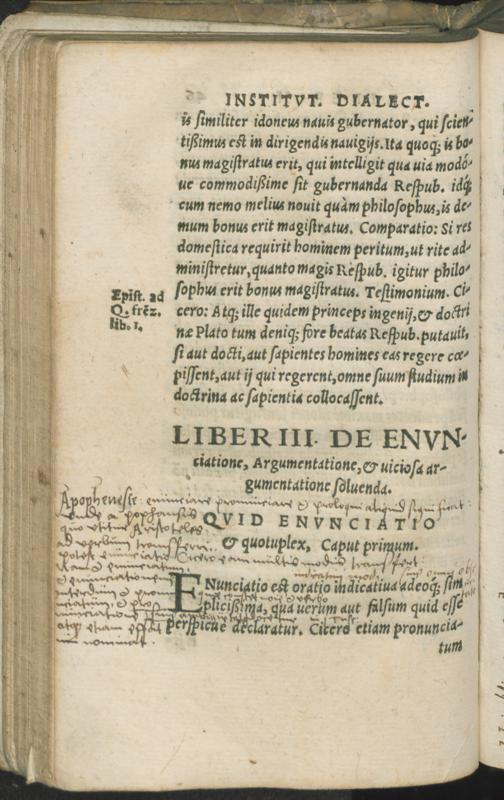 INSTITVT. DIALECT.
is similiter idoneus nauis gubernator, qui scien-
tißimus est in dirigendis nauigijs. Ita quoq; is bo-
nus magistratus erit, qui intelligit qua uia modó-
ue commodißime sit gubernanda Respub. idq;
cum nemo melius nouit quàm philosophus, is de-
mum bonus erit magistratus. Comparatio: Si res
domestica requirit hominem peritum, ut rite ad-
ministretur, quanto magis Respub. igitur philo-
sophus erit bonus magistratus. Testimonium. Ci-
Epist. ad
Q. frēz.
lib. 1.
cero: Atq; ille quidem princeps ingenij, & doctri
næ Plato tum deniq; fore beatas Respub. putauit,
si aut docti, aut sapientes homines eas regere cœ-
pissent, aut ij qui regerent, omne suum studium in
doctrina ac sapientia collocassent.
LIBER III. DE ENVN-
ciatione, Argumentatione, & uiciosa ar-
gumentatione soluenda.
enunciare pronunciare & aliquid significat
QVID ENVNCIATIO
quo utitur Aristoteles
& quotuplex, Caput primum.
ad uerbum transferri
potest enunciatio Cicero eam multis modis transfert
& enunciationem
ENunciatio est oratio indicatiua adeoq; sim
plicißima, qua uerum aut falsum quid esse
perspicue declaratur. Cicero etiam pronuncia-
atq; etiam effat
nominat.
tum